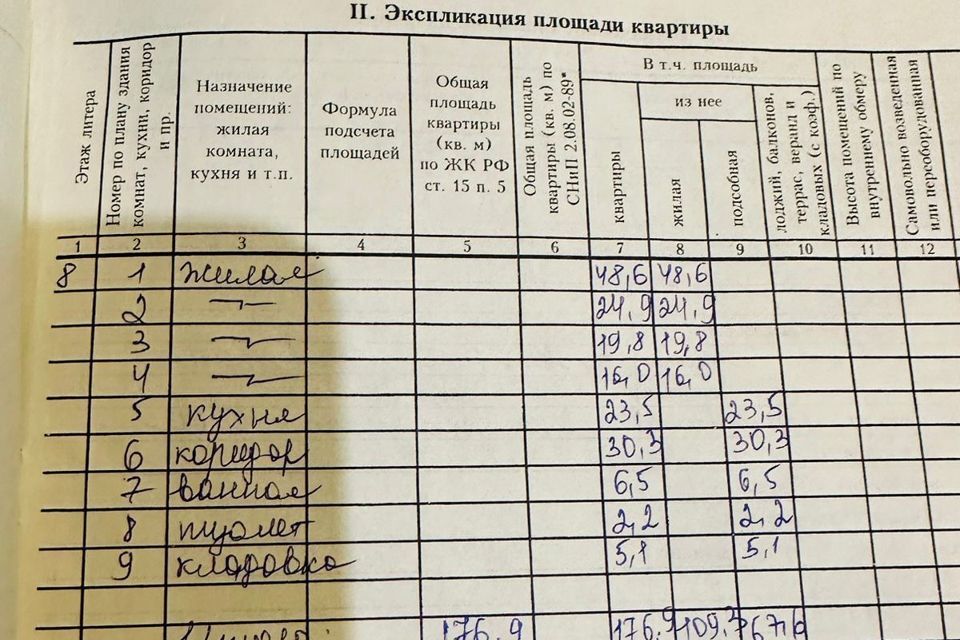 II. Экспликация площади квартиры
Этаж литера
Номер по плану здания комнат, кухни, коридор и пр.
Назначение помещений: жилая комната, кухня и т.п.
Формула подсчета площадей
Общая площадь квартиры (кв. м) по ЖК РФ ст. 15 п. 5
Общая площадь квартиры (кв. м) по СНиП 2.08.02-89*
В т.ч. площадь
из нее
квартиры
жилая
подсобная
лоджий, балконов, террас, веранд и кладовых (с коэф.)
Высота помещений по внутреннему обмеру
Самовольно возведенная или переоборудованная
1 2 3 4 5 6 7 8 9 10 11 12
8 1 жилая 48,6 48,6
2 24,9 24,9
3 19,8 19,8
4 16,0 16,0
5 кухня 23,5 23,5
6 коридор 30,3 30,3
7 ванная 6,5 6,5
8 туалет 2,2 2,2
9 кладовка 5,1 5,1
176,9 176,9 109,3 67,6